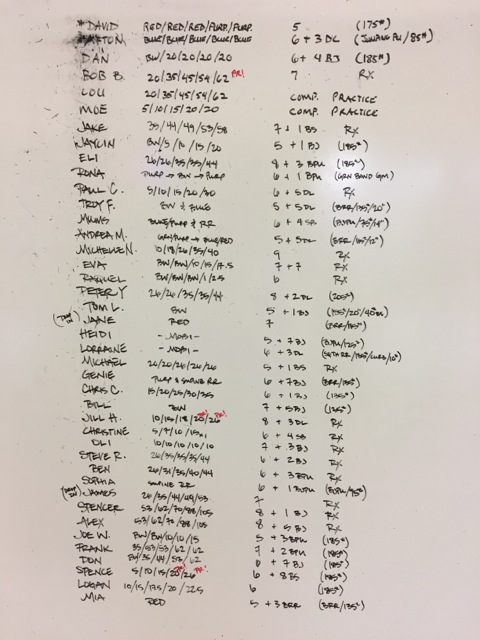 *DAVID RED/RED/RED/PURP./PURP. 5 (175#)
BLUE/BLUE/BLUE/BLUE/BLUE 6 + 3 DL
DAN BW/20/20/20/20 6 + 4 BJ (185#)
BOB B. 20/35/45/54/62 PR! 7 RX
LOU 20/35/45/54/62 COMP. PRACTICE
MOE 5/10/15/20/20 COMP. PRACTICE
JAKE 35/44/49/53/58 7 + 1 BS RX
JAYLIN BW/5/10/15/20 5 + 1 BJ (185#)
ELI 26/26/35/35/44 8 + 3 BPU (185#)
RONA PURP → BW → PURP 6 + 1 BPU (GRN BAND GPM)
PAUL C. 5/10/15/20/30 6 + 5DL RX
TROY F. BW & BLUE 5 + 5DL (BRR/135#/20")
MIMMS BLUE/PURP & RR 6 + 4 SR
ANDREA M. GRN/PURP → BLUE/RED 5 + 5DL
MICHELLE N. 10/18/26/35/40 9 RX
EVA BW/BW/10/15/17.5 7 + 7 RX
RAQUEL BW/BW/BW/1/2.5 6 RX
PETER Y 26/26/35/35/44 8 + 2DL (205#)
TOM L. BW 5 + 1 BJ
JANE RED 7 (BRR/115#)
HEIDI - MOBI -
LORRAINE - MOBI - 5 + 7BJ
MICHAEL 26/26/26/26/26 6 + 3DL
GENIE PURP & SWING RR 5 + 1BS RX
CHRIS C. 15/20/25/30/35 6 + 7BJ (BRR/135#)
BILL BW 6 + 1BJ (135#)
JILL H. 10/15/18/20/26 PR! 7 + 5BJ (135#)
CHRISTINE 5/7/10/15x1 8 + 3DL RX
OLI 10/10/10/10/10 6 + 4 SB RX
STEVE R. 26/35/35/35/44 7 + 3BJ RX
BEN 26/31/35/40/44 6 + 2BJ RX
SOPHIA SWING RR 6 + 3BPU RX
JAMES 26/35/44/49/53 6 + 1 BPU
SPENCER 53/62/70/88/105 7 RX
ALEX 53/62/70/88/105 8 + 1 BJ RX
JOE W. BW/BW/10/10/15 8 + 5 BJ RX
FRANK 35/53/53/62/62 5 + 3BPU (185#)
DON BW/35/44/53/62 7 + 2BPU (185#)
SPENCE 5/10/15/20/26 PR! 6 + 7 BJ (185#)
LOGAN 10/15/17.5/20/22.5 6 + 8BS (185#)
MIA RED 6 (185#)
5 + 3 BRR (BRR/135#)